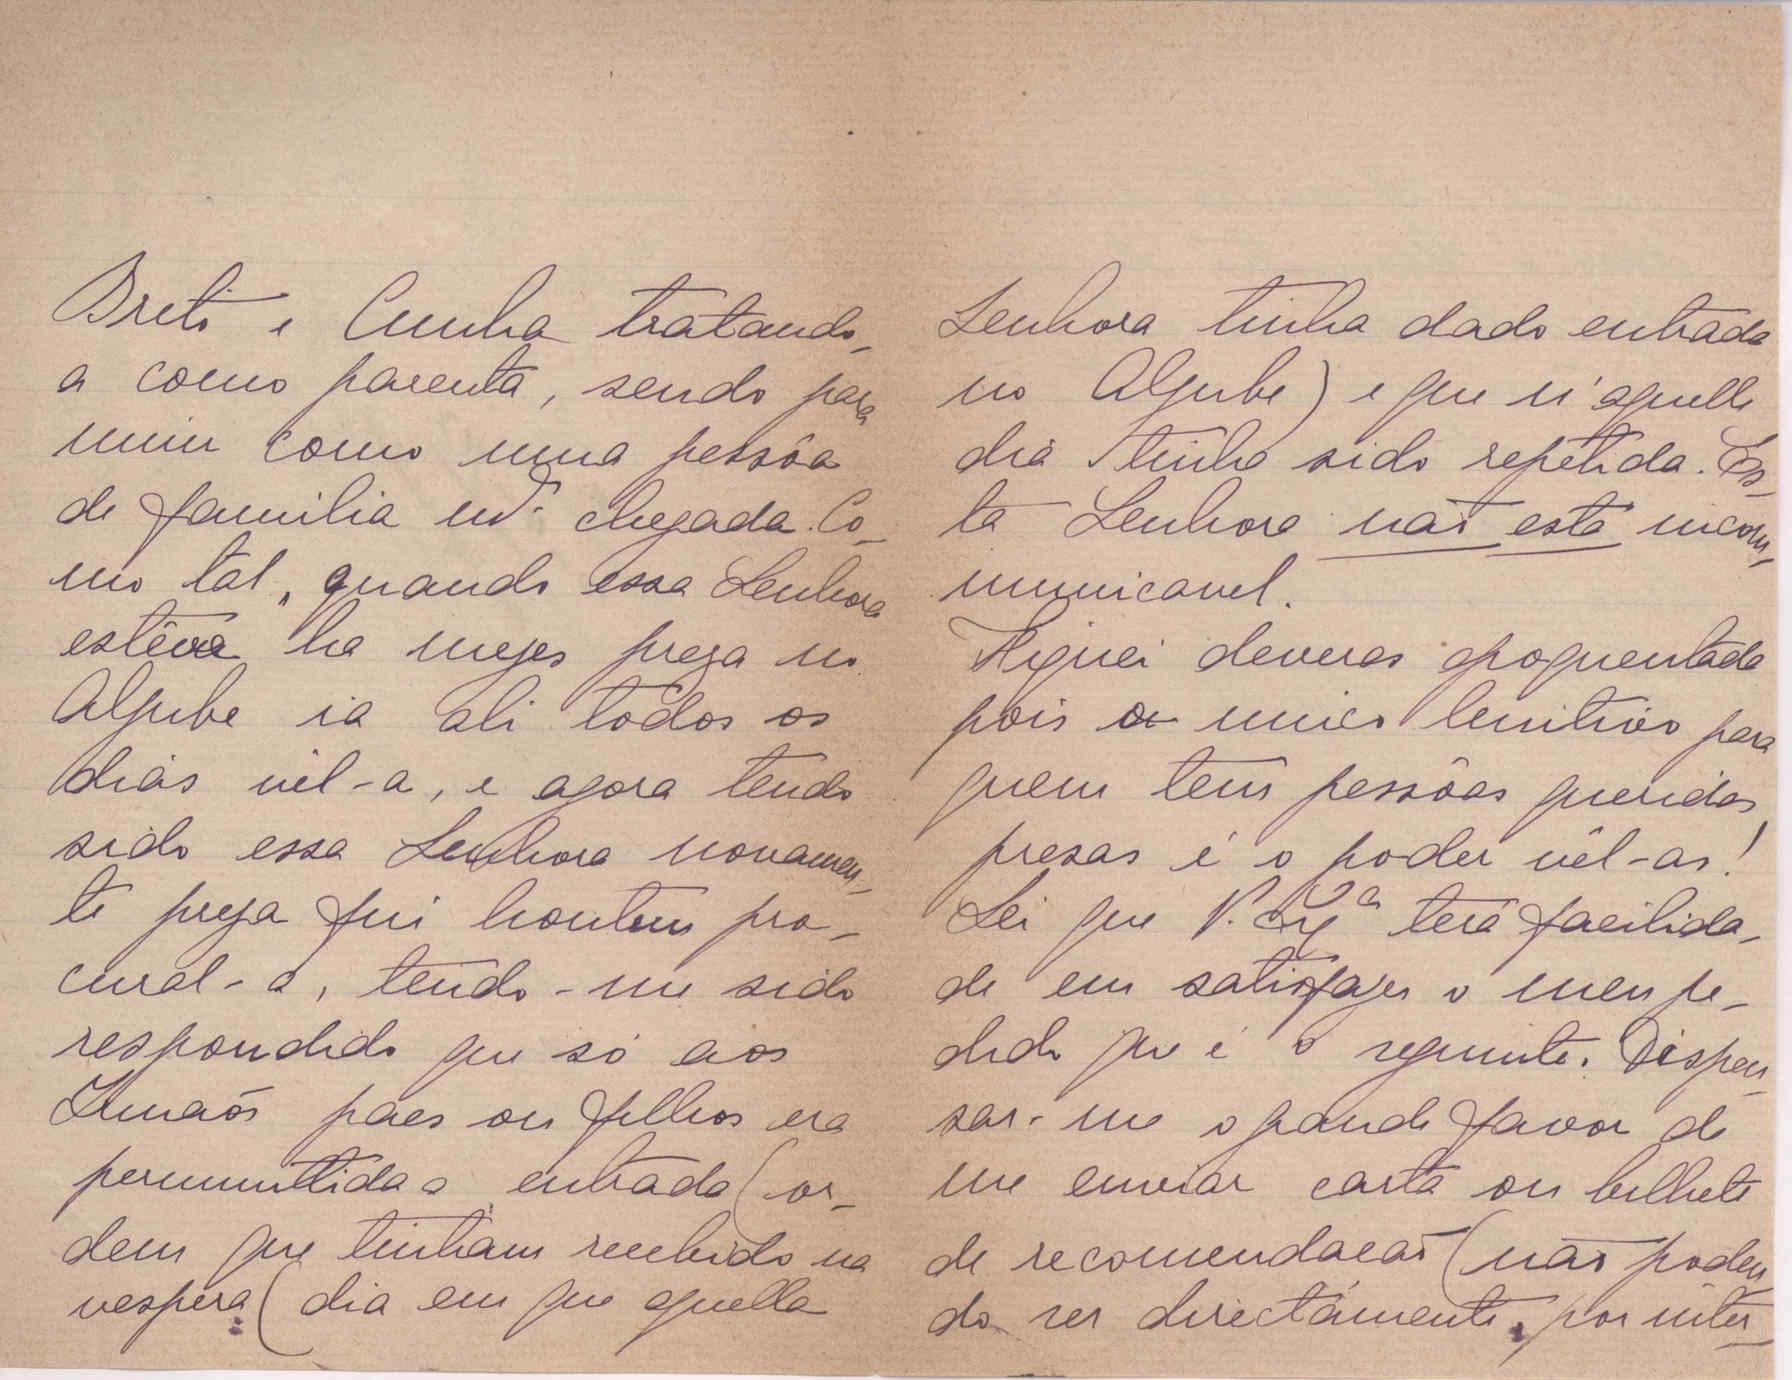 Brito e Cunha tratando-
a como parenta, sendo para
mim como uma pessôa
de familia mto chegada. Co-
mo tal, quando essa Senhora
estêve ha mezes preza no
Aljube ia ali todos os
dias vêl-a, e agora tendo
sido essa Senhora novamen-
te preza fui hontem pro-
cural-a, tendo-me sido
respondido que só aos
Irmãos paes ou filhos era
permmittida a entrada (or-
dem que tinham recebido na
vespera (dia em que aquella
Senhora tinha dado entrada
no Aljube) e que n'aquelle
dia tinha sido repetida. Es-
ta Senhora não está incom-
municavel.
Fiquei deveras apoquentada
pois o unico lenitivo para
quem tem pessôas queridas
presas é o poder vêl-as!
Sei que V. Exª terá facilida-
de em satisfazer o meu pe-
dido que é o seguinte. Dispen-
sar-me o grande favor de
me enviar carta ou bilhete
de recomendacão (não poden-
do ser directamente, por inter-